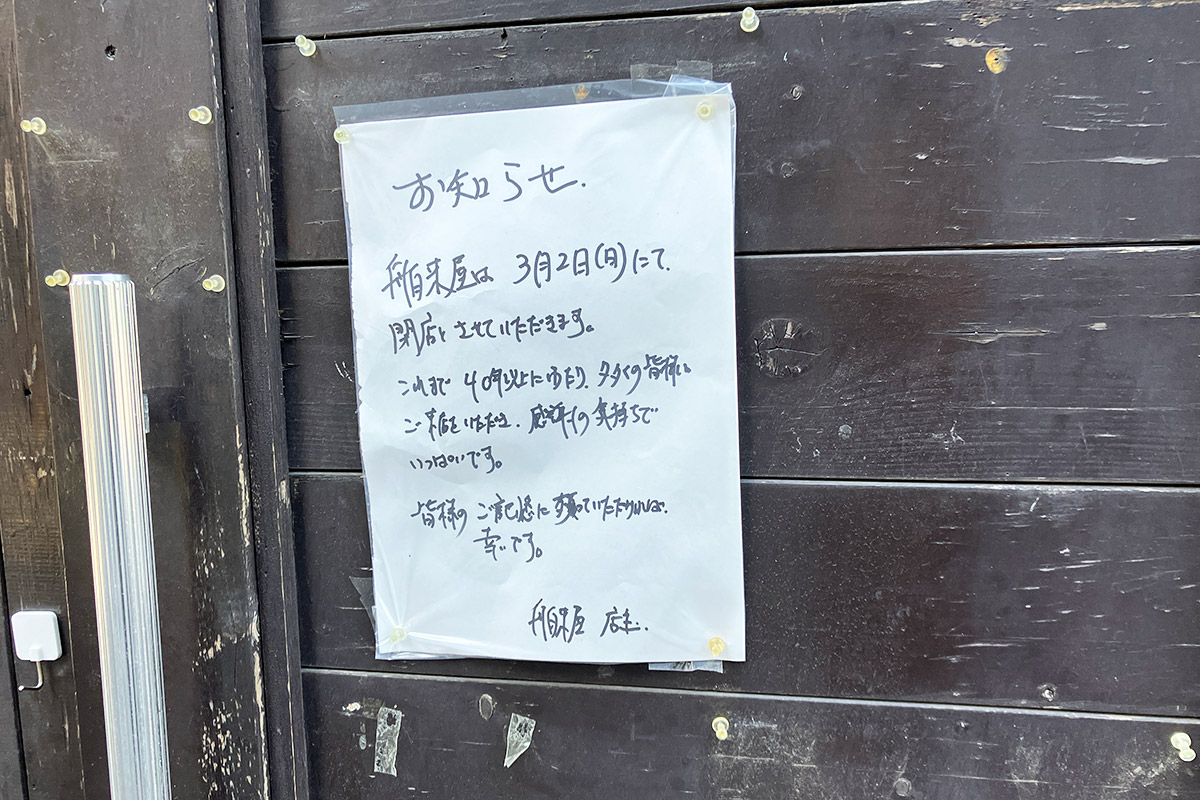 お知らせ.
舶来屋は 3月2日(日)にて.
閉店とさせていただきます。
これまで 40年以上にわたり、多くの皆様に
ご来店いただき、感謝の気持ちで
いっぱいです。
皆様の ご記憶に残っていただければ.
幸いです。
舶来屋 店主.